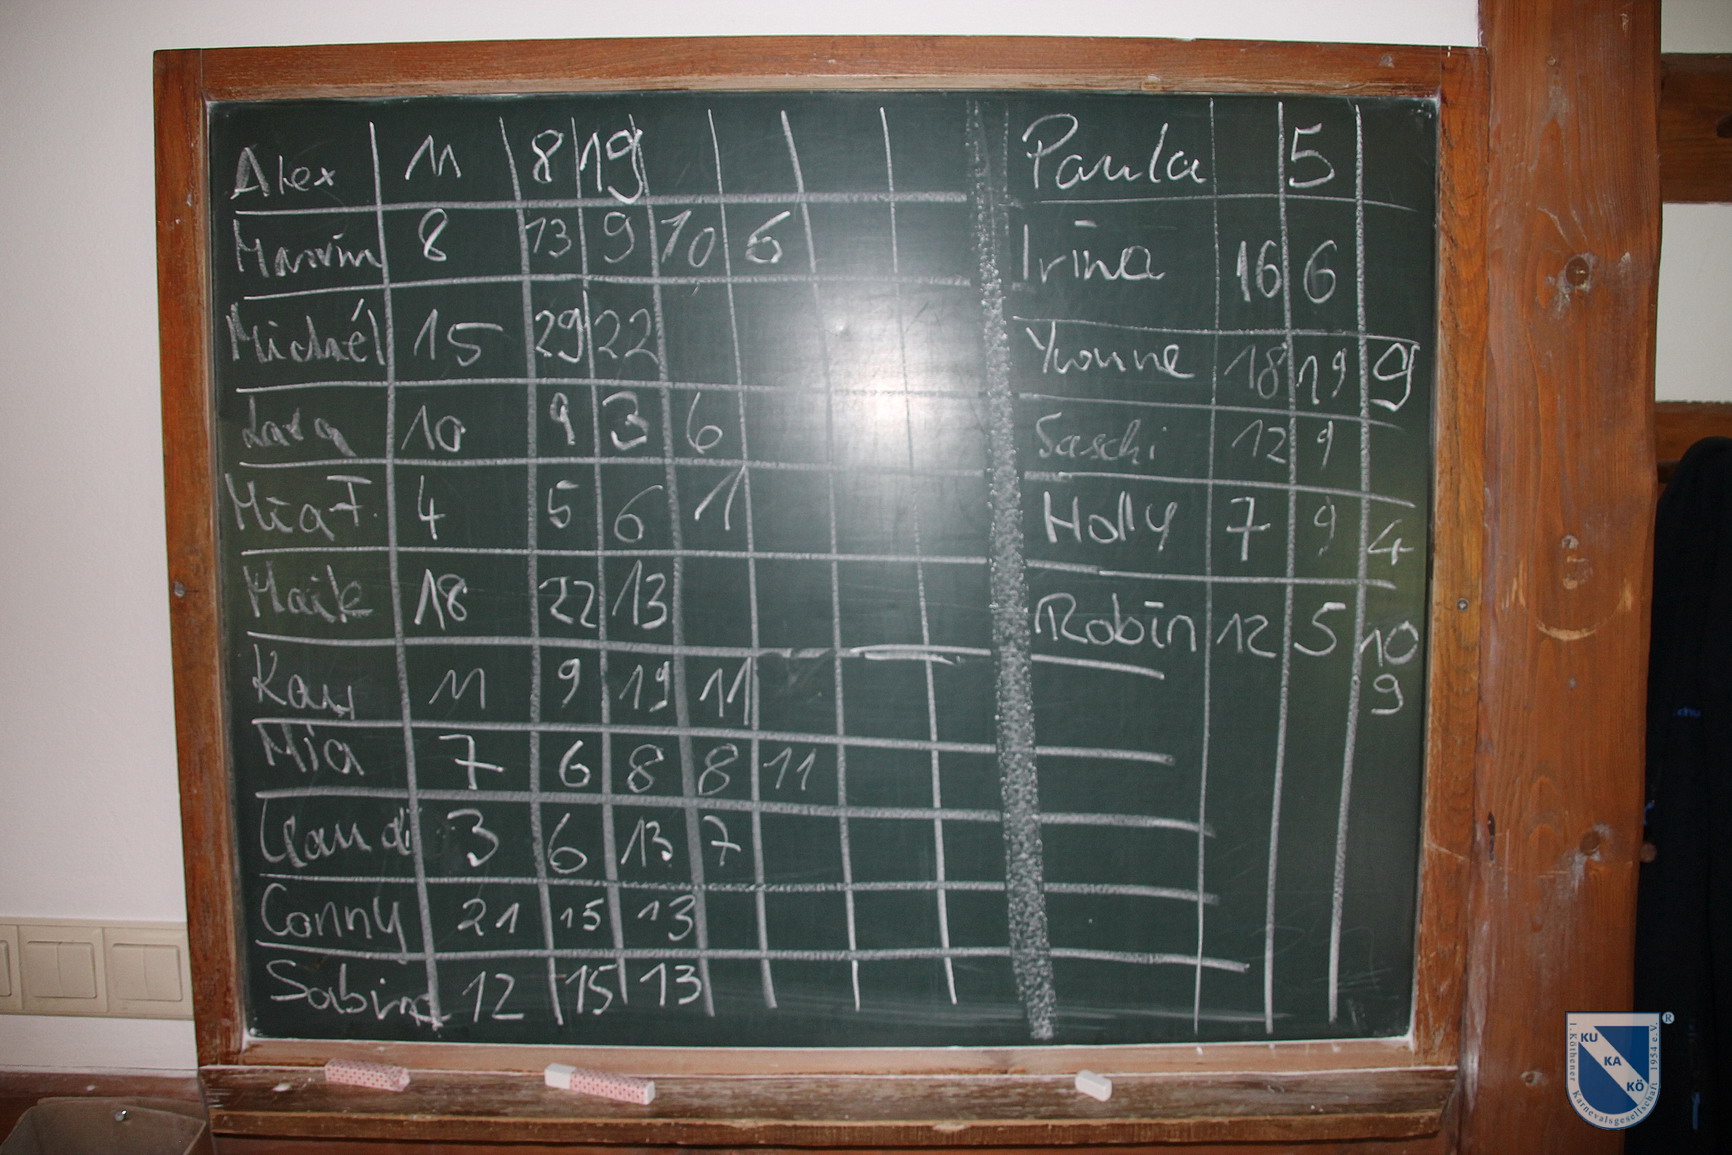 Alex 11 8 19
Marvin 8 13 9 10 6
Michél 15 29 22
Lara 10 9 3 6
Mia F. 4 5 6 1
Maik 18 22 13
Kay 11 9 19 11
Mia 7 6 8 8 11
Claudi 3 6 13 7
Conny 21 15 13
Sabine 12 15 13
Paula 5
Irina 16 6
Yvonne 18 19 9
Saschi 12 9
Holly 7 9 4
Robin 12 5 10
9
KU
KA
KÖ
1. Köthener Karnevalsgesellschaft 1954 e.V.
®